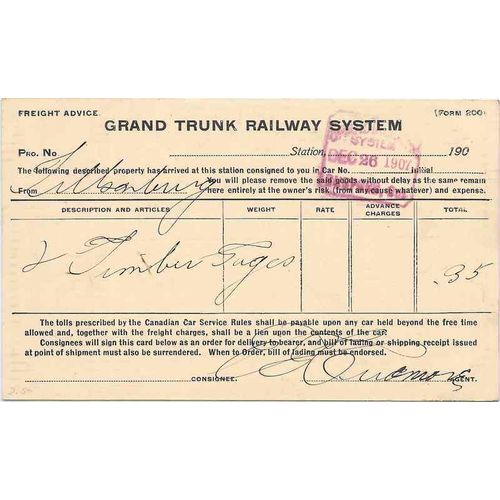 FREIGHT ADVICE.
(FORM 200)
GRAND TRUNK RAILWAY SYSTEM
SYSTEM
DEC 26 1907
PRO. NO
Station
190
The following described property has arrived at this station consigned to you in Car No. Initial
You will please remove the said goods without delay as the same remain
From Tillsonburg here entirely at the owner's risk (from any cause whatever) and expense.
DESCRIPTION AND ARTICLES WEIGHT RATE ADVANCE CHARGES TOTAL
2 Timber .35
The tolls prescribed by the Canadian Car Service Rules shall be payable upon any car held beyond the free time
allowed and, together with the freight charges, shall be a lien upon the contents of the car.
Consignees will sign this card below as an order for delivery to bearer, and bill of lading or shipping receipt issued
at point of shipment must also be surrendered. When to Order, bill of lading must be endorsed.
CONSIGNEE. AGENT.